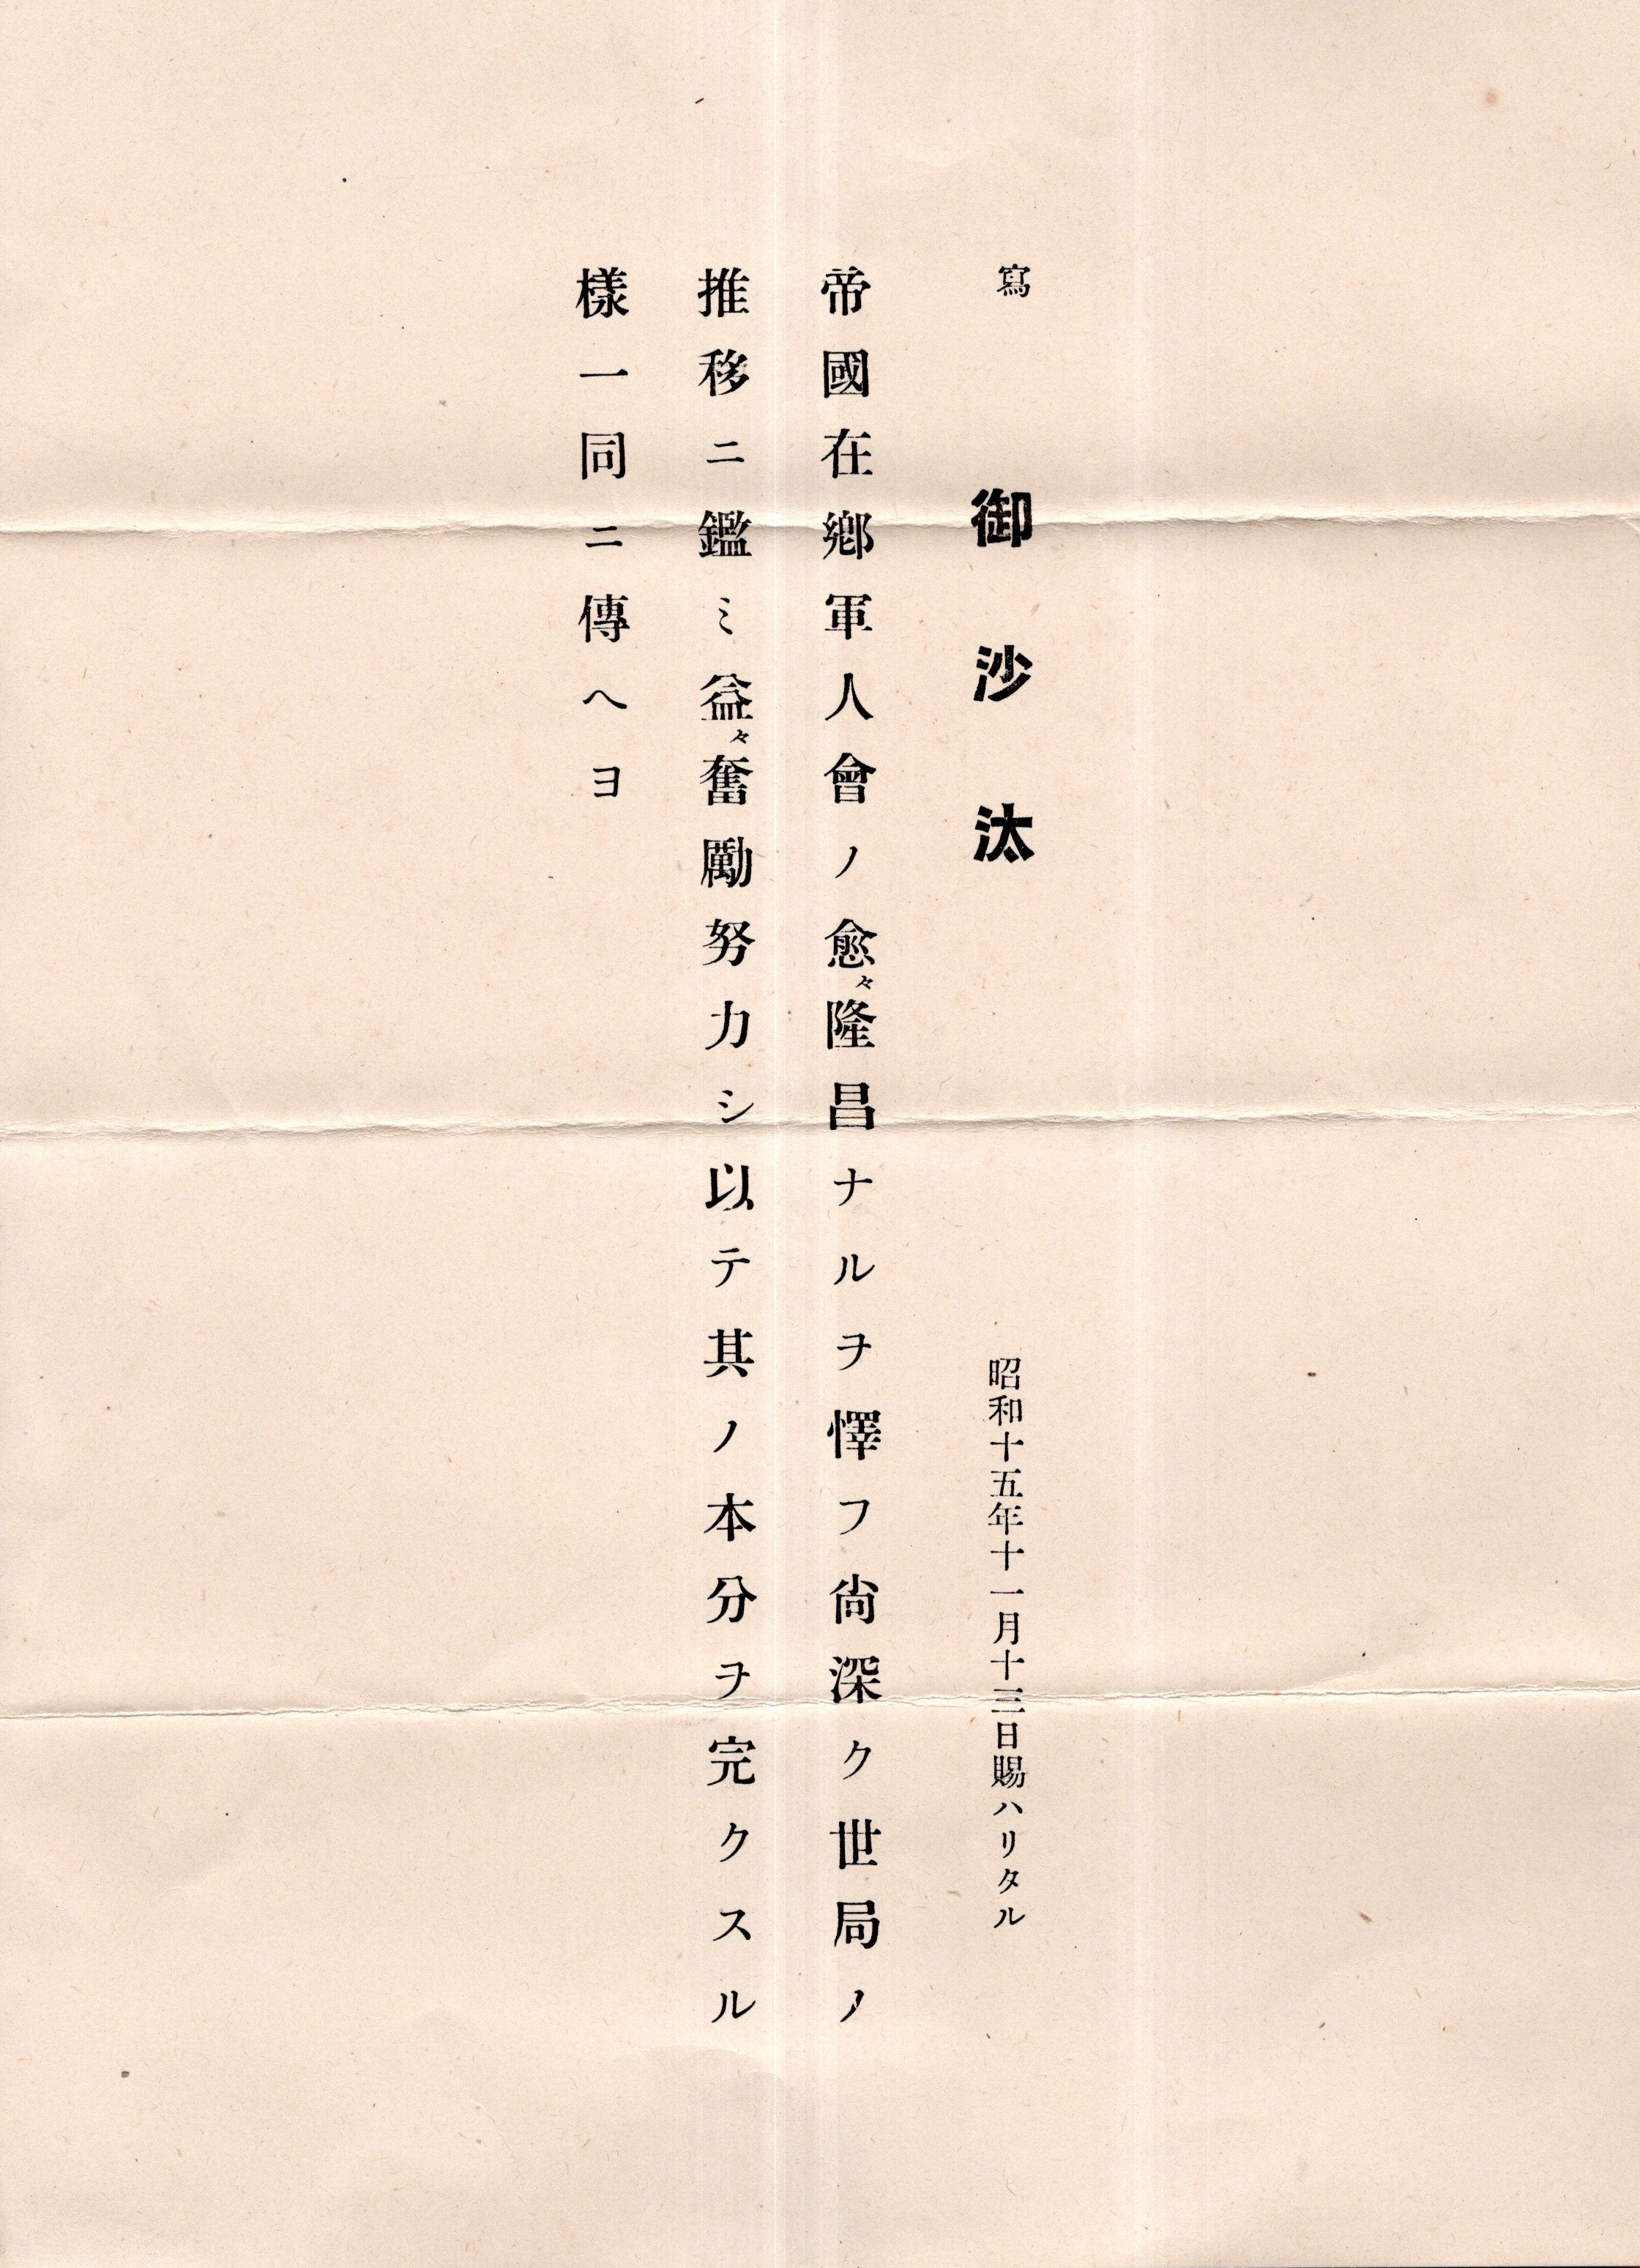 寫
御沙汰
昭和十五年十一月十三日賜ハリタル
帝國在鄕軍人會ノ愈々隆昌ナルヲ懌フ尙深ク世局ノ
推移ニ鑑ミ益々奮勵努力シ以テ其ノ本分ヲ完クスル
樣一同ニ傳ヘヨ